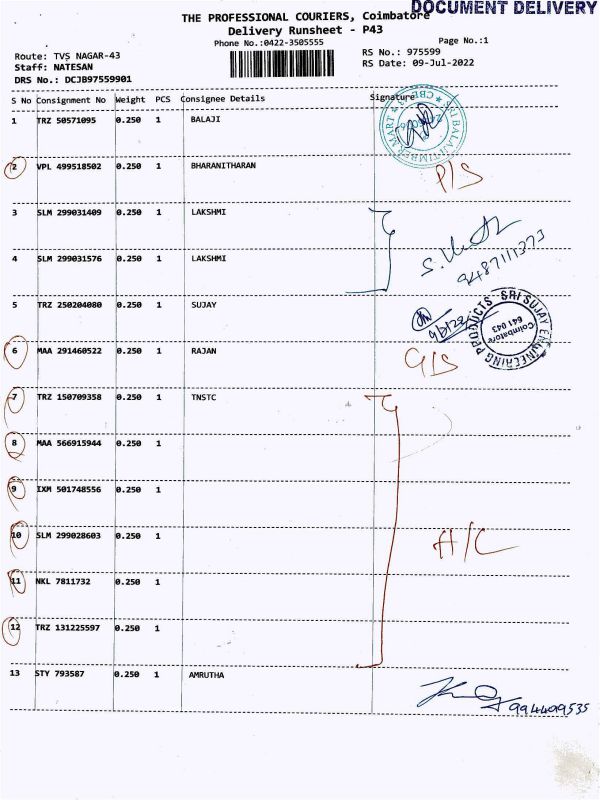 DOCUMENT DELIVERY
THE PROFESSIONAL COURIERS, Coimbatore
Delivery Runsheet - P43
Phone No.:0422-3505555
Page No.:1
Route: TVS NAGAR-43
RS No.: 975599
Staff: NATESAN
RS Date: 09-Jul-2022
DRS No.: DCJB97559901
S No Consignment No Weight PCS Consignee Details Signature
1 TRZ 50571095 0.250 1 BALAJI
SRI BALAJI TIMBER MART
2 VPL 499518502 0.250 1 BHARANITHARAN
P/S
3 SLM 299031409 0.250 1 LAKSHMI
4 SLM 299031576 0.250 1 LAKSHMI
9487111373
5 TRZ 250204080 0.250 1 SUJAY
SRI SUJAY ENGINEERING PRODUCTS
Coimbatore
641 043
6 MAA 291460522 0.250 1 RAJAN
G/S
7 TRZ 150709358 0.250 1 TNSTC
8 MAA 566915944 0.250 1
9 IXM 501748556 0.250 1
10 SLM 299028603 0.250 1
H/C
11 NKL 7811732 0.250 1
12 TRZ 131225597 0.250 1
13 STY 793587 0.250 1 AMRUTHA
994499535